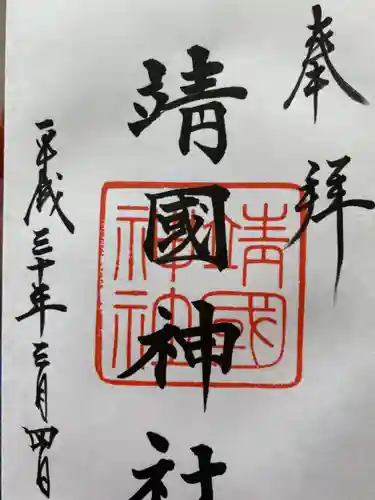 奉拝
靖國神社
平成三十年三月四日
靖國
神社